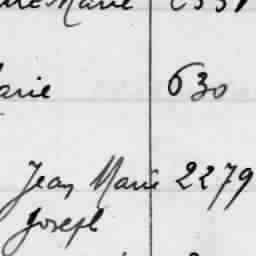 Marie
arie 630
Jean Marie 2279
Joseph